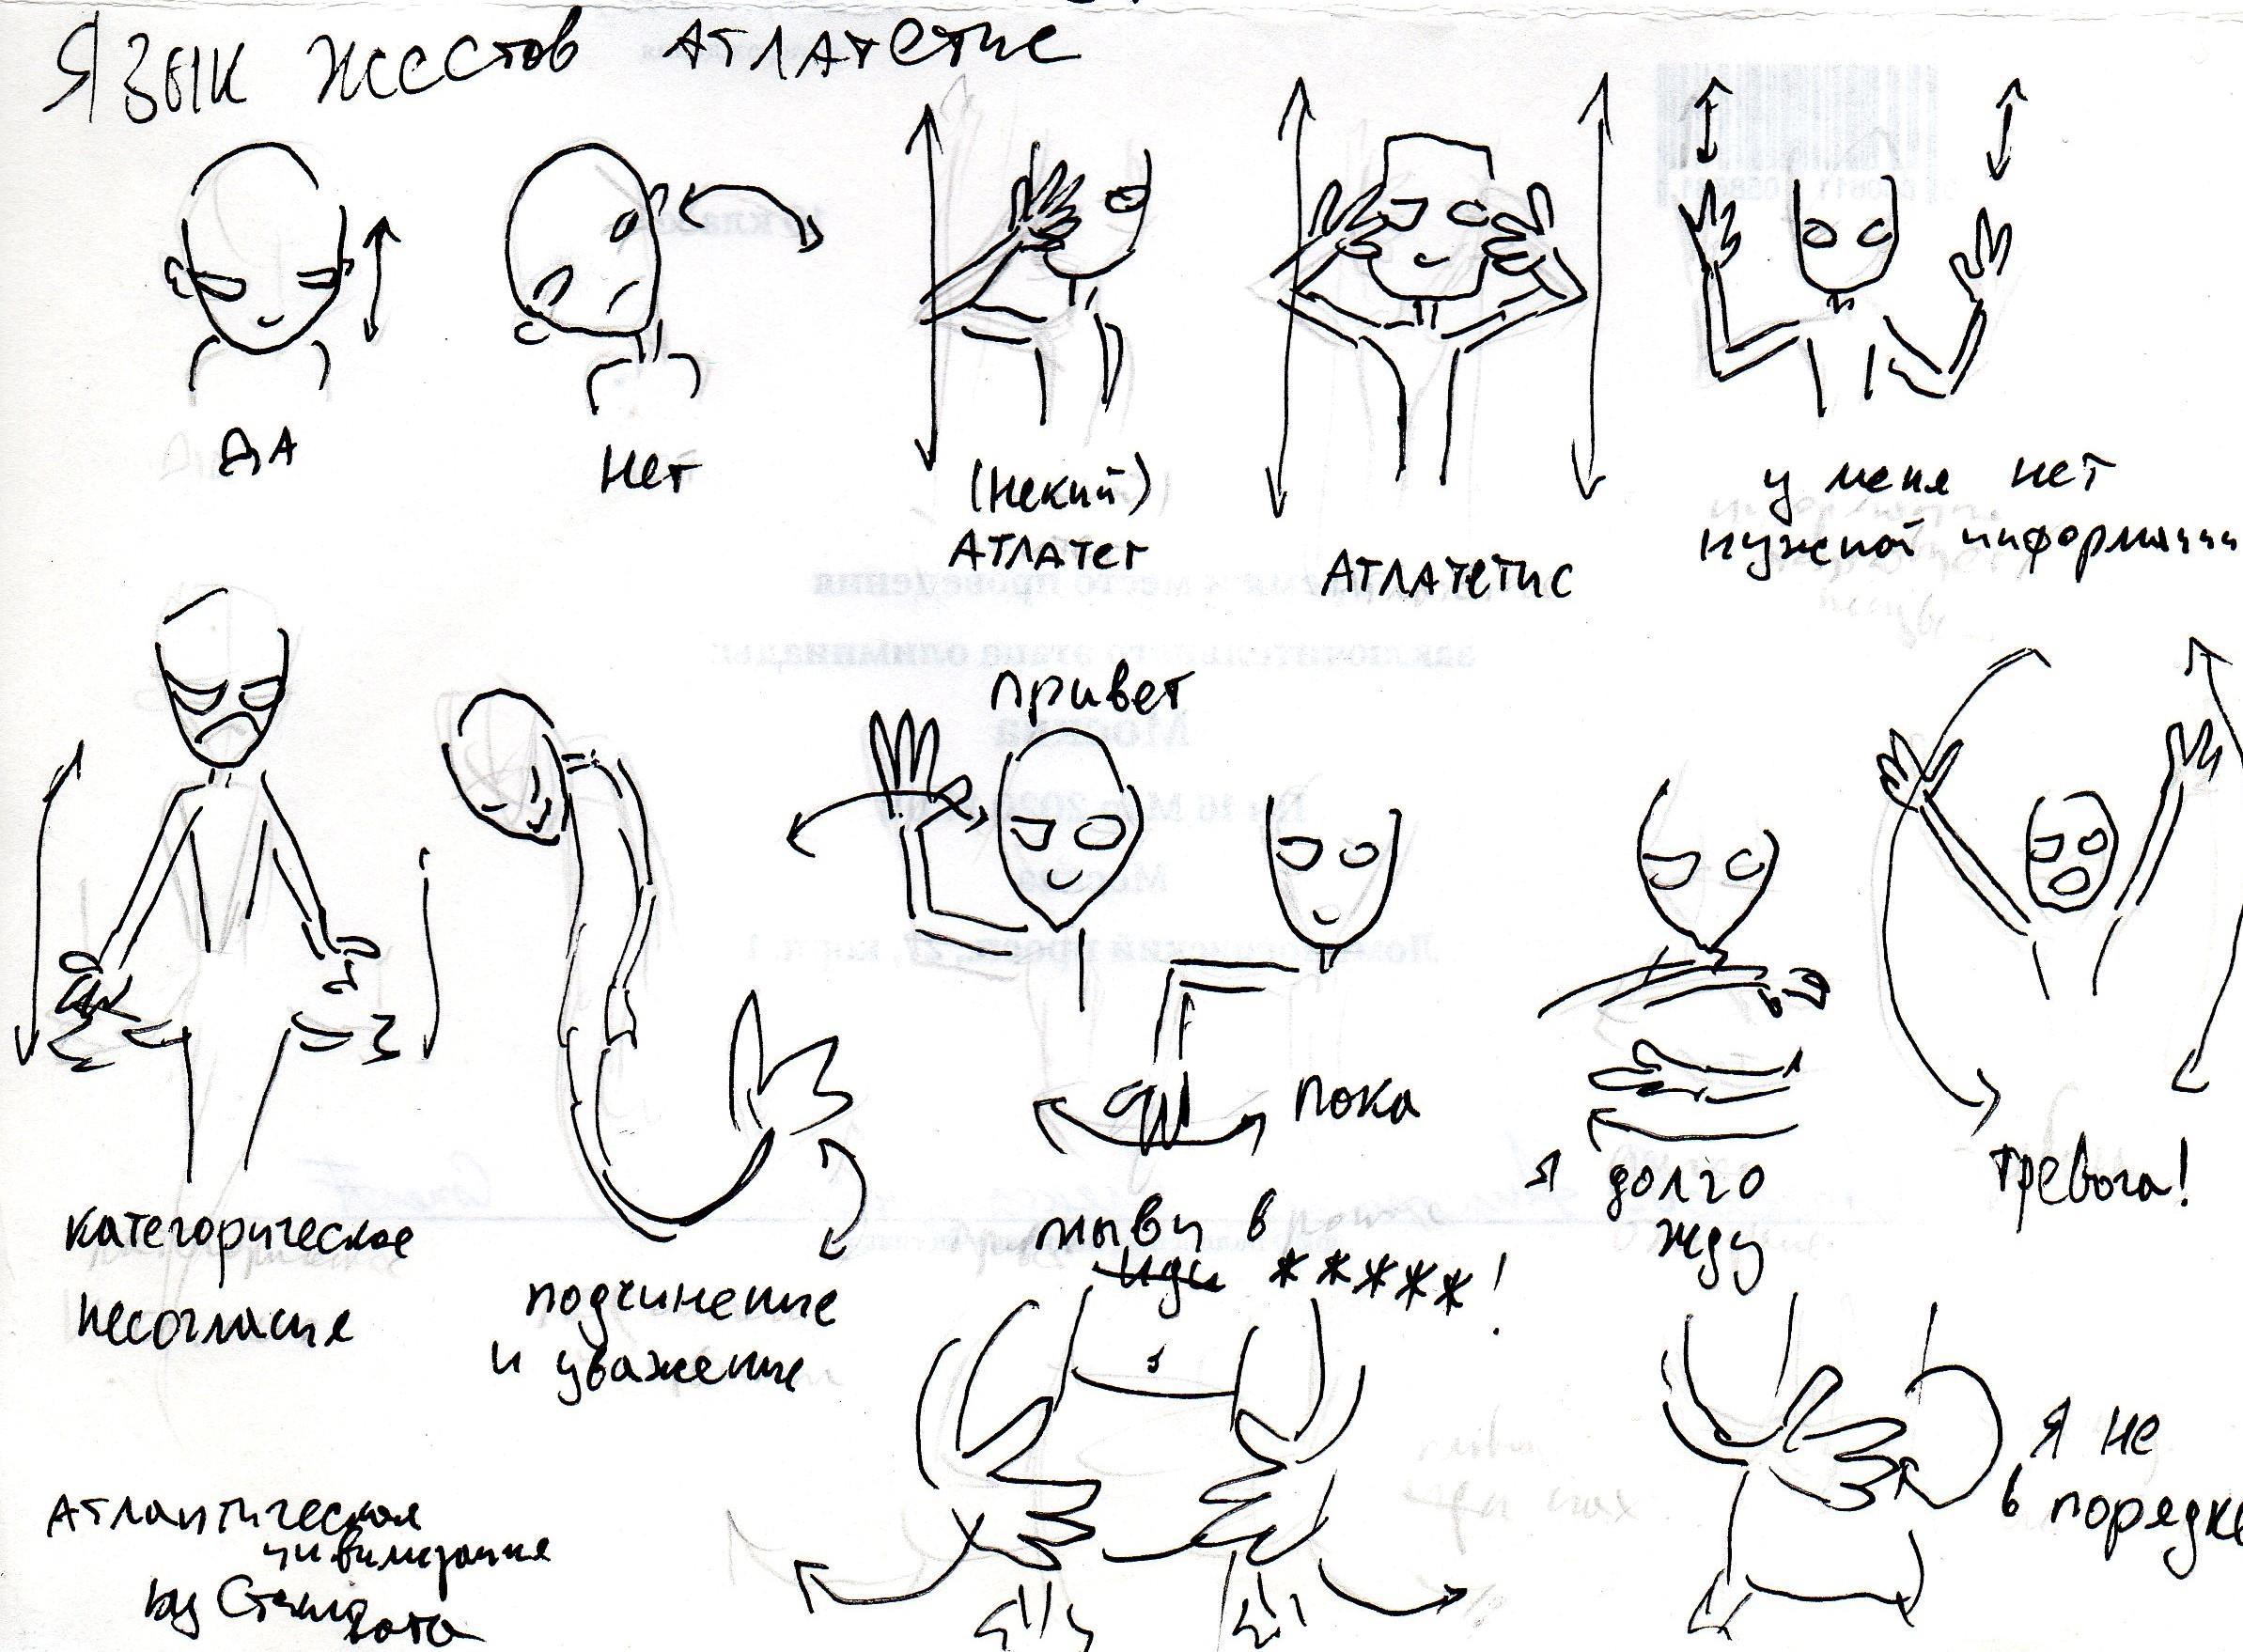 Язык жестов Атлатетис
Да
Нет
(некий)
Атлатег
Атлатетис
у меня нет
нужной информации
привет
пока
я долго
жду
тревога!
категорическое
несогласие
подчинение
и уважение
плыви в
иди *****!
я не
в порядке
Атлантическая
цивилизация
by